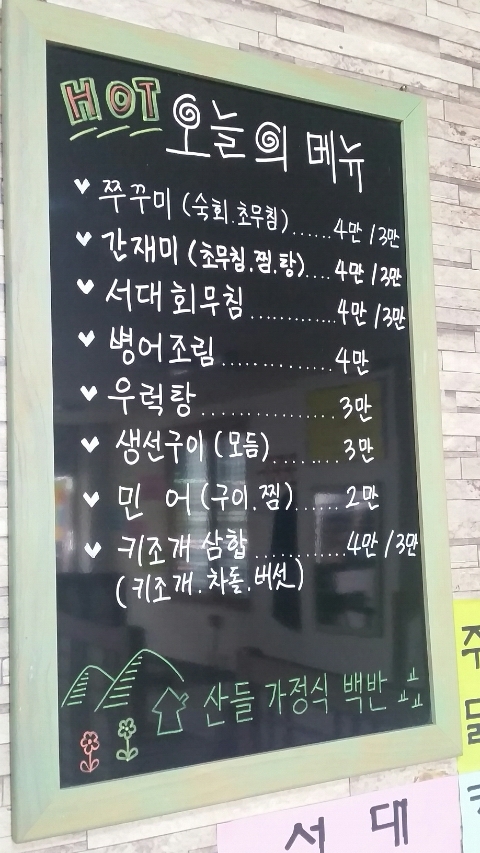 HOT 오늘의 메뉴
쭈꾸미 (숙회.초무침)......4만 / 3만
간재미 (초무침.찜.탕)....4만 / 3만
서대회무침............4만 / 3만
병어조림..............4만
우럭탕................3만
생선구이 (모듬)........3만
민 어 (구이.찜)......2만
키조개 삼합...........4만 / 3만
(키조개.차돌.버섯)
산들 가정식 백반
서 대